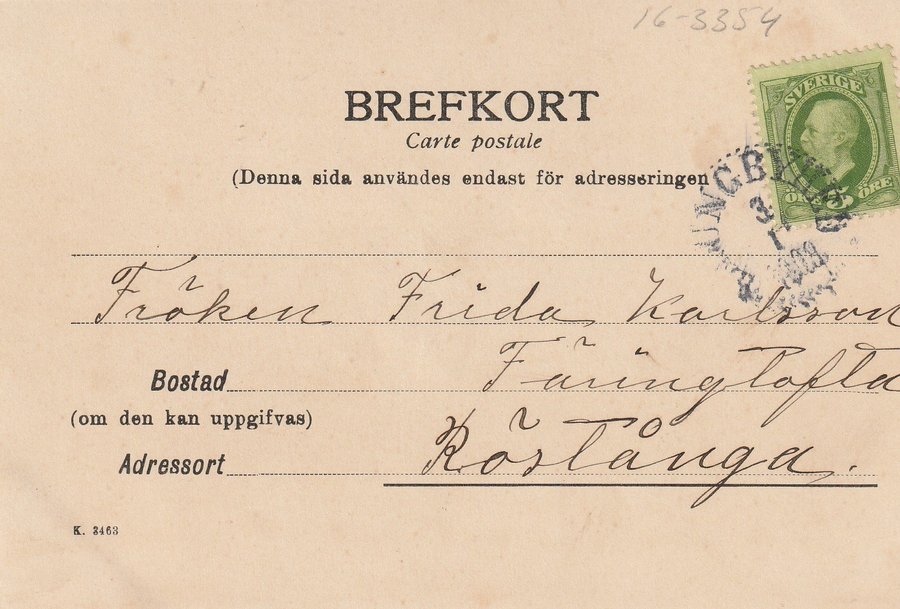 16-3354
BREFKORT
Carte postale
(Denna sida användes endast för adresseringen
SVERIGE
5 ÖRE
Fröken Frida Karlsson
Färingtofta
Bostad
(om den kan uppgifvas)
Röstånga.
Adressort
K. 3463